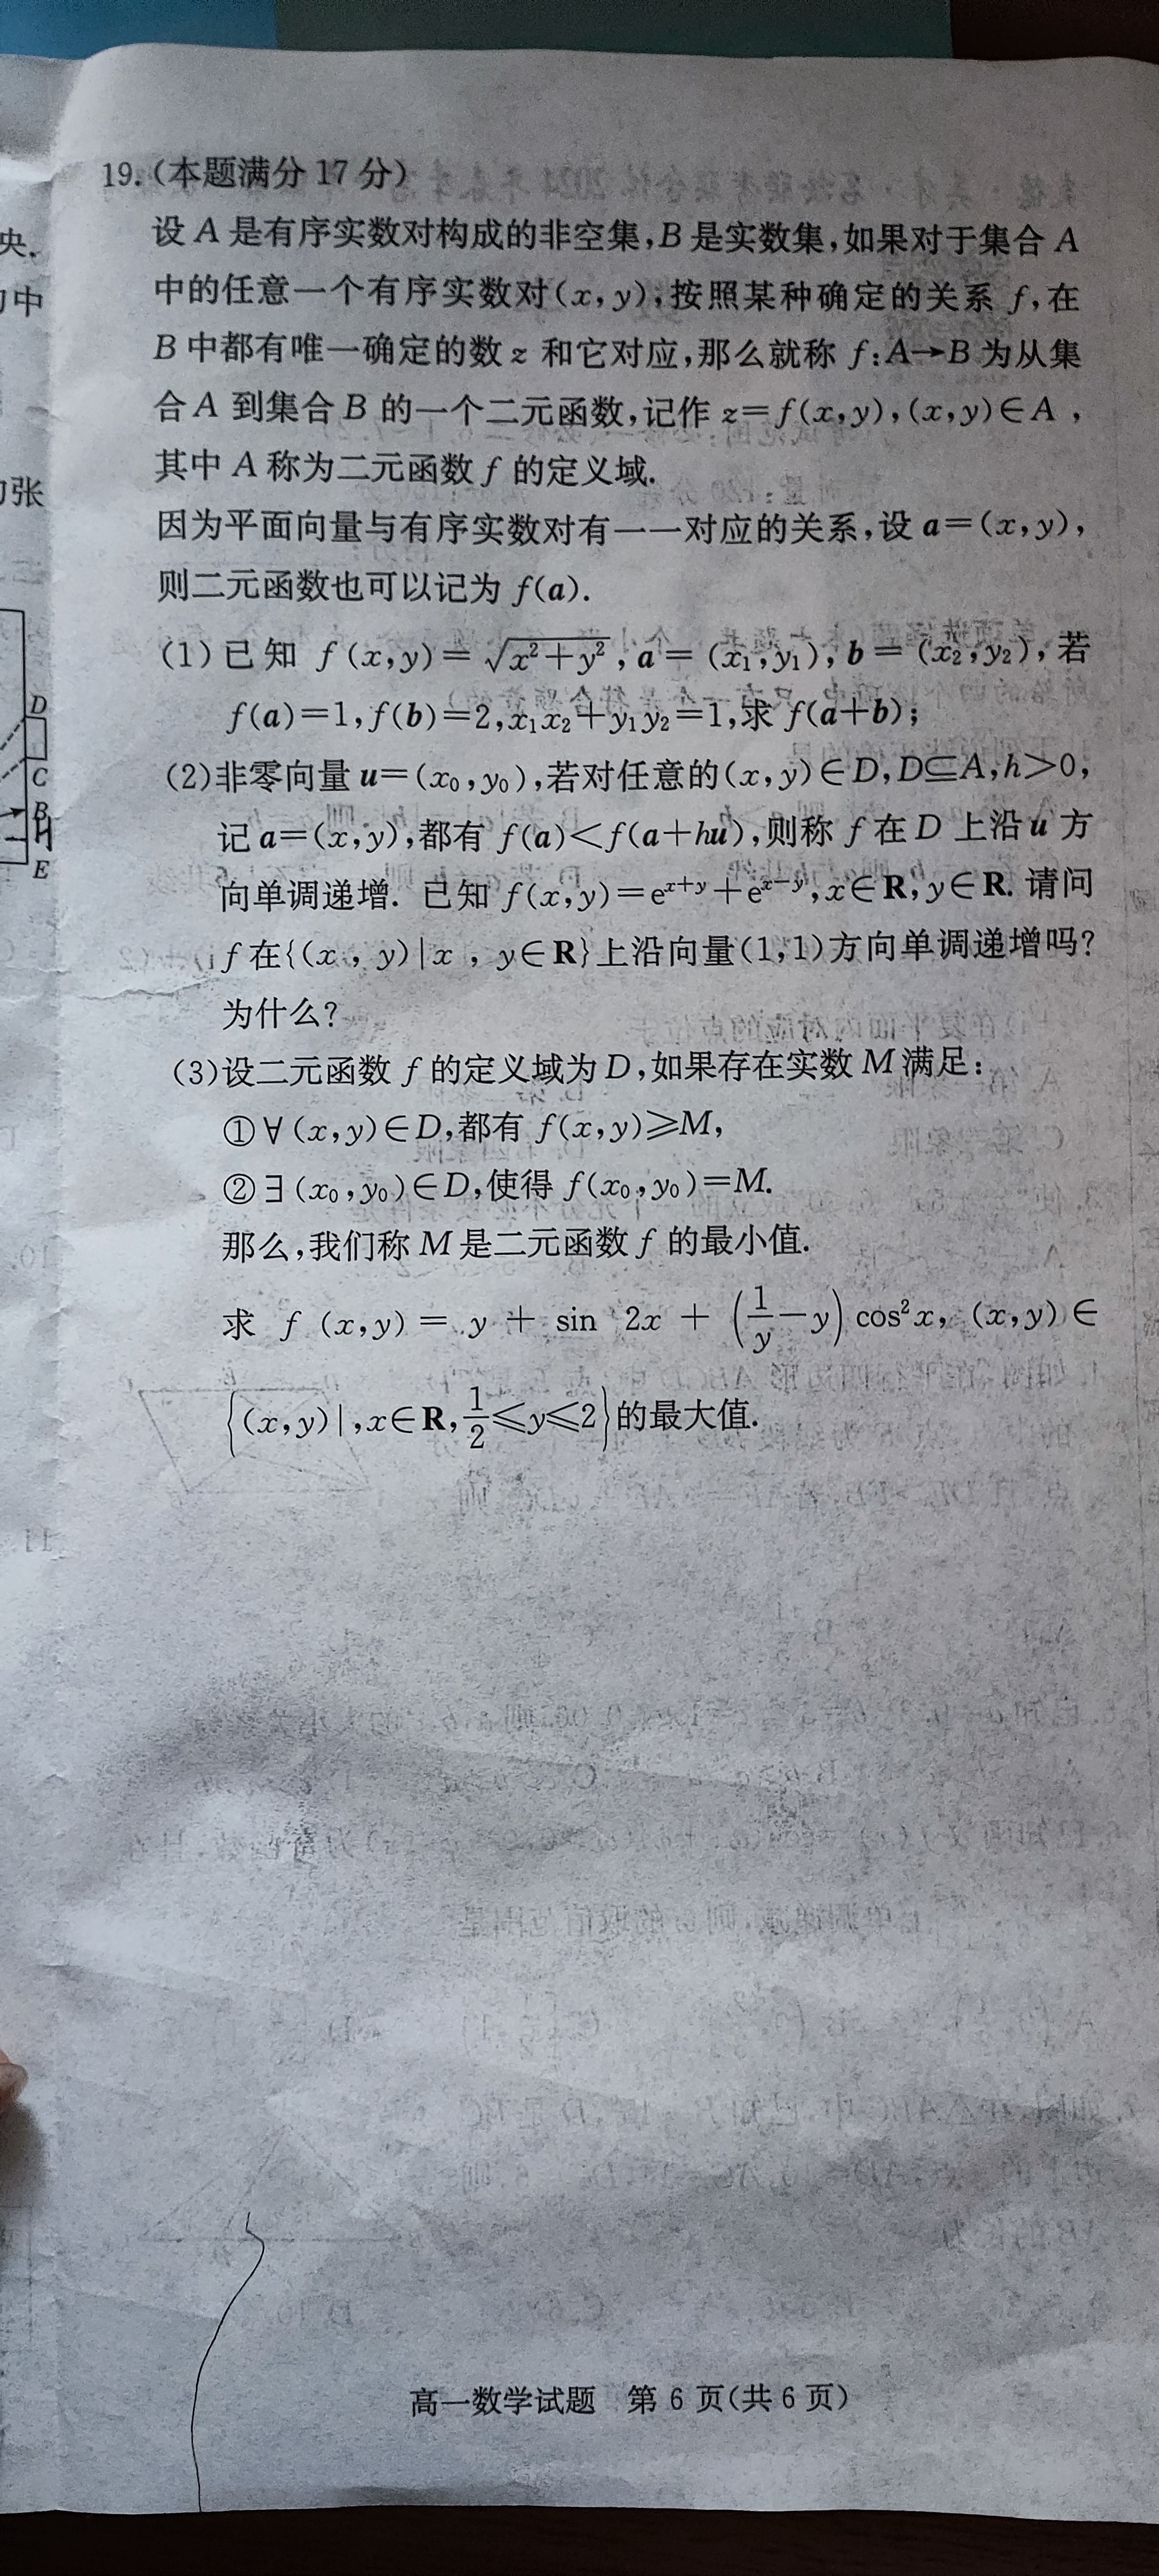 19.(本题满分 17 分)
设 A 是有序实数对构成的非空集,B 是实数集,如果对于集合 A
中的任意一个有序实数对(x,y),按照某种确定的关系 f,在
B 中都有唯一确定的数 z 和它对应,那么就称 f:A→B 为从集
合 A 到集合 B 的一个二元函数,记作 z=f(x,y),(x,y)∈A ,
其中 A 称为二元函数 f 的定义域.
因为平面向量与有序实数对有一一对应的关系,设 a=(x,y),
则二元函数也可以记为 f(a).
(1)已知 f(x,y)=√(x²+y²),a=(x₁,y₁),b=(x₂,y₂),若
f(a)=1,f(b)=2,x₁x₂+y₁y₂=1,求 f(a+b);
(2)非零向量 u=(x₀,y₀),若对任意的(x,y)∈D,D⊆A,h>0,
记 a=(x,y),都有 f(a)<f(a+hu),则称 f 在 D 上沿 u 方
向单调递增. 已知 f(x,y)=eˣ⁺ʸ+eˣ⁻ʸ,x∈R,y∈R. 请问
f 在{(x , y)|x , y∈R}上沿向量(1,1)方向单调递增吗?
为什么?
(3)设二元函数 f 的定义域为 D,如果存在实数 M 满足:
①∀(x,y)∈D,都有 f(x,y)≥M,
②∃(x₀,y₀)∈D,使得 f(x₀,y₀)=M.
那么,我们称 M 是二元函数 f 的最小值.
求 f (x,y) = y + sin 2x + (1/y−y) cos²x, (x,y) ∈
{(x,y)|,x∈R,1/2≤y≤2}的最大值.
高一数学试题 第 6 页(共 6 页)
央.
中
张
D
C
B
H
E